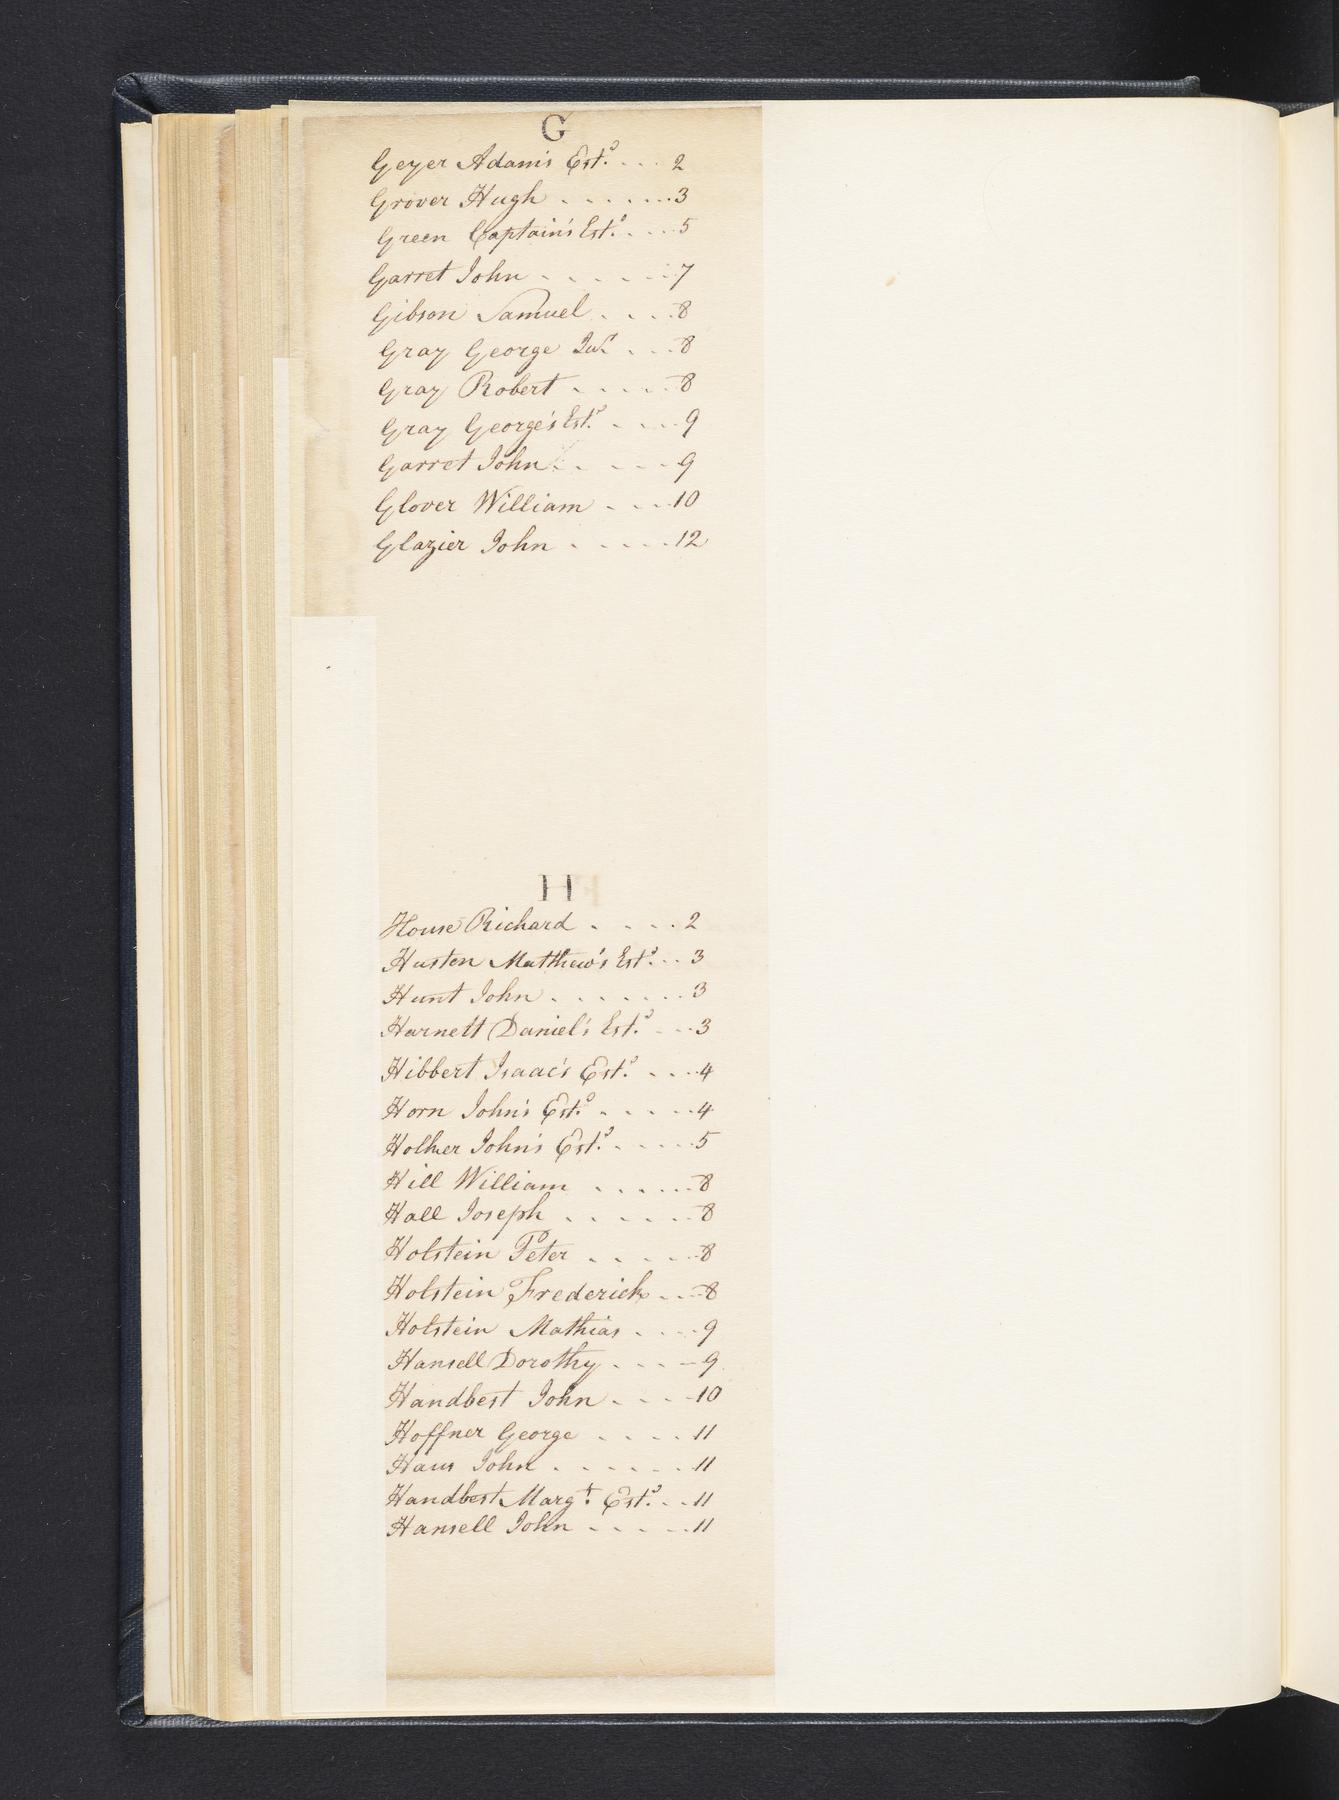 G
Geyer Adam's Est.ᵈ .... 2
Grover Hugh ....... 3
Green Captain's Est.ᵈ .... 5
Garret John ...... 7
Gibson Samuel .... 8
Gray George Junʳ .... 8
Gray Robert ..... 8
Gray George's Est.ᵈ .... 9
Garret John ..... 9
Glover William .... 10
Glazier John ..... 12
H
House Richard ..... 2
Huston Matthew's Est.ᵈ ... 3
Hunt John ....... 3
Harnett Daniel's Est.ᵈ ... 3
Hibbert Isaac's Est.ᵈ .... 4
Horn John's Est.ᵈ ..... 4
Holker John's Est.ᵈ ..... 5
Hill William ...... 8
Hall Joseph ...... 8
Holstein Peter ..... 8
Holstein Frederick .... 8
Holstein Mathias .... 9
Hansell Dorothy .... 9
Handbest John .... 10
Hoffner George .... 11
Haus John ...... 11
Handbest Marg.ᵗ Est.ᵈ ... 11
Hansell John ..... 11